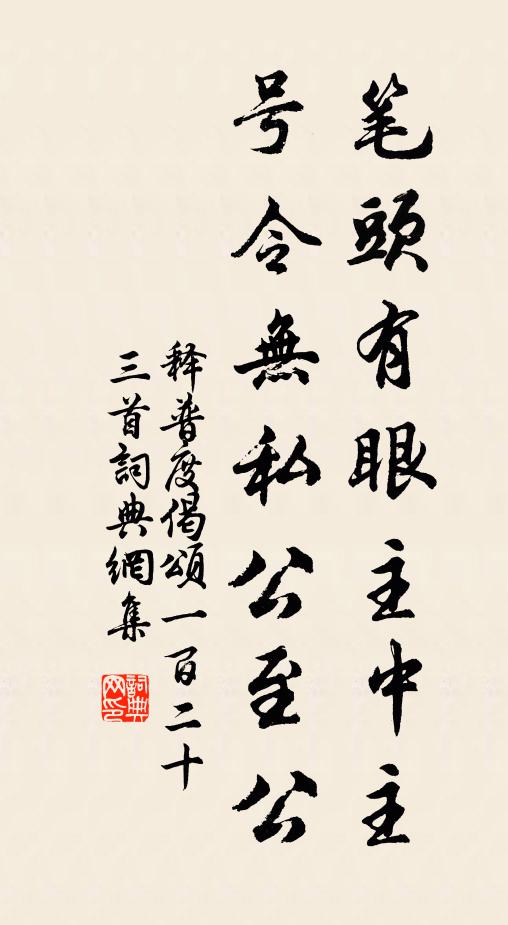 笔頭有眼主中主
号令無私公至公
释普度偈頌一百二十
三首詞典網集
詞典网印